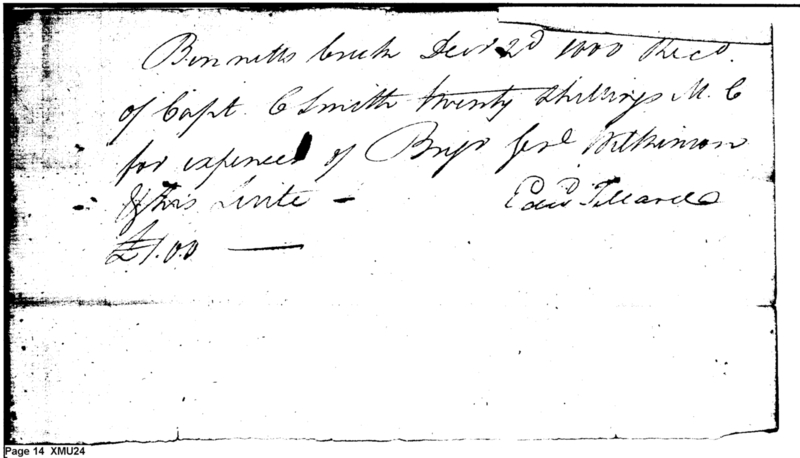 Bennetts Creek Decr 2d 1800 Recd.
of Capt. C Smith twenty Shillings M. C
for expences of Brigr Genl Wilkinson
& his Suite –
Edwd Tillard
£1.0.0 —
Page 14 XMU24